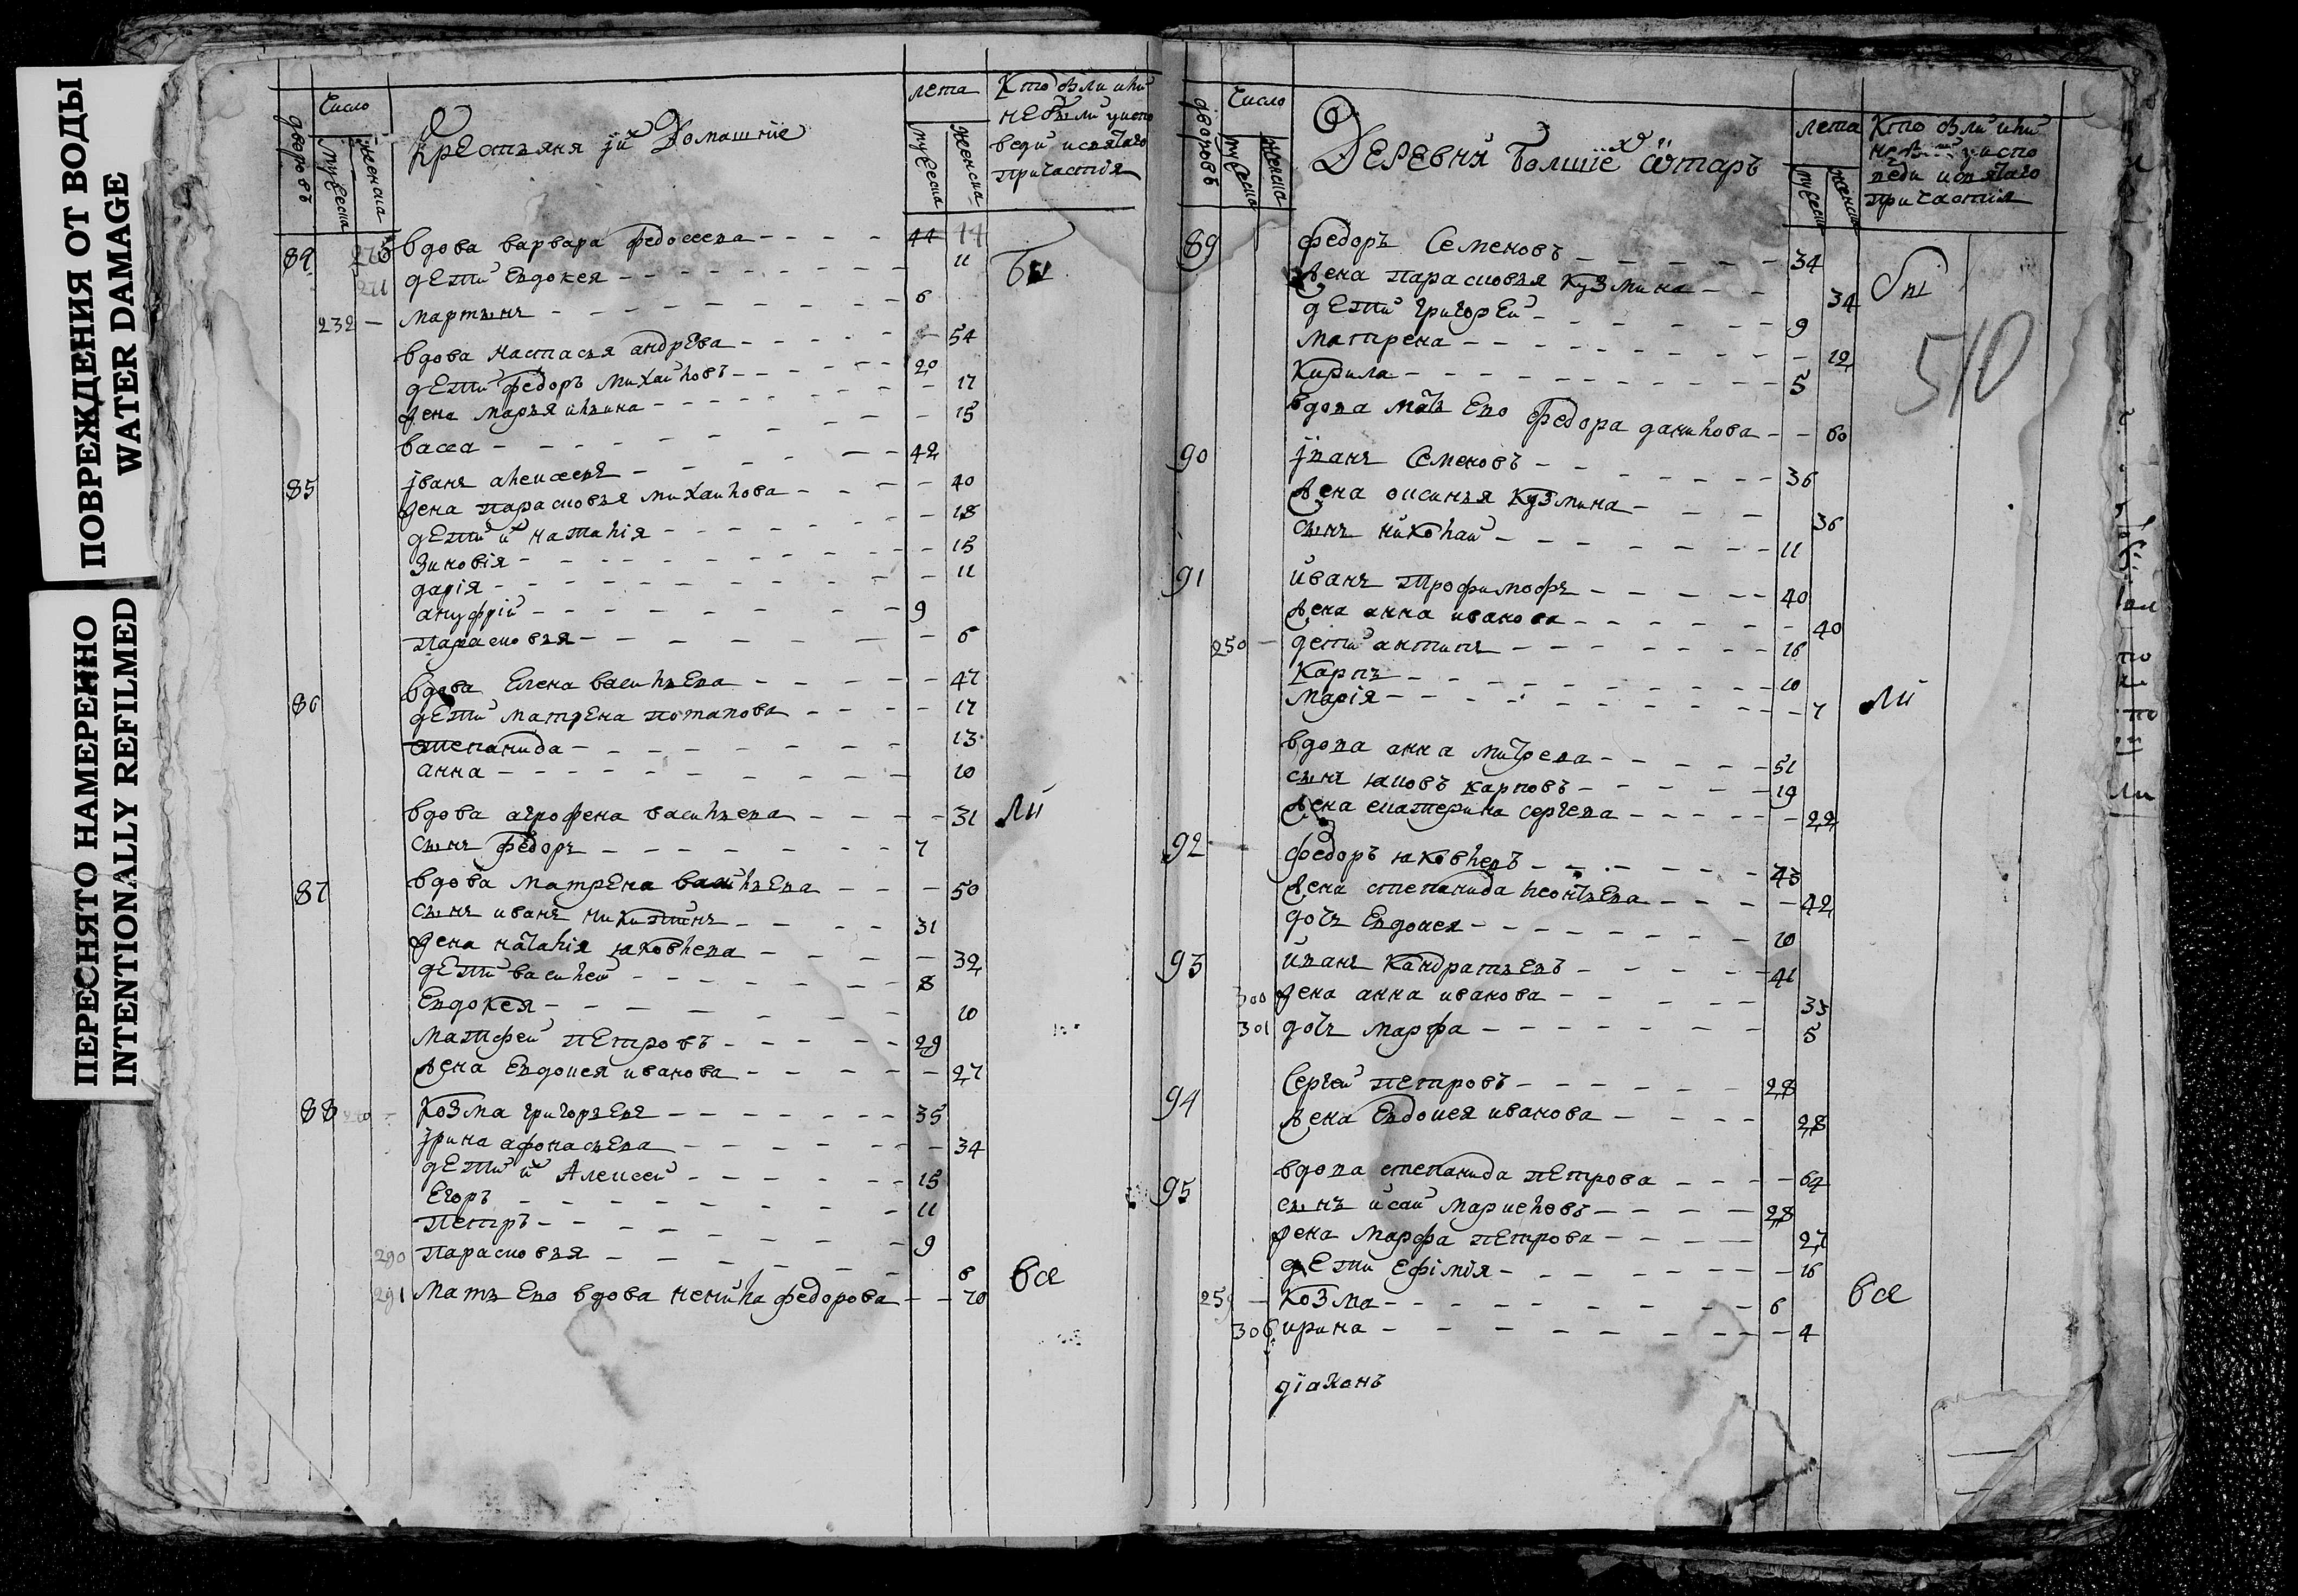 ПОВРЕЖДЕНИЯ ОТ ВОДЫ
WATER DAMAGE
ПЕРЕСНЯТО НАМЕРЕННО
INTENTIONALLY REFILMED
дворовъ
Число
мужеска
женска
Крестьяня їй Домашнїе
лета
мужеска
женска
Кто были или
не были у испо
веди и святаго
причастїя
84 270 вдова варвара федосеева 44 44 Бы
271 дети Евдокея 11
232 мартынъ 6
вдова настасья андрева 54
дети федоръ михаиловъ 20
жена марья ильина 17
васса 15
85 јванъ алексеевъ 42
жена парасковья михаилова 40
дети й наталїя 18
Зиновїя 15
дарїя 11
ануфрїй 9
парасковья 6
86 вдова Елена васильева 47
дети матрена потапова 17
степанида 13
анна 10
вдова агрофена васильева 31 ли
сынъ федоръ 7
87 вдова матрена васильева 50
сынъ иванъ никитинъ 31
жена наталїя яковлева 32
дети василей 8
Евдокея 10
матфеи петровъ 29
жена Евдокея иванова 27
88 Козма григорьевъ 35
јрина афонасьева 34
дети й Алексей 15
Егоръ 11
петръ 9
290 парасковья 6
291 мать Ево вдова ненила федорова 70 все
дворовъ
Число
мужеска
женска
Деревни Болшїе хѿтаръ
лета
мужеска
женска
Кто были или
не были у испо
веди и святаго
причастїя
89 федоръ Семеновъ 34 бы
жена парасковья кузмина 34
510
дети григорей 9
матрена 12
Кирила 5
вдова мать Ево федора данилова 60
90 јванъ Семеновъ 36
жена оксинья кузмина 36
сынъ николаи 11
91 иванъ трофимофъ 40
жена анна иванова 40
250 дети антипъ 16
Карпъ 10
марїя 7 ли
вдова анна митрева 51
сынъ яковъ карповъ 19
жена екатерина сергева 22
92 федоръ яковлевъ 43
жена степанида леонтьева 42
дочь Евдокея 10
93 иванъ Кандратьевъ 41
300 жена анна иванова 33
301 дочь марфа 5
94 Сергеи петровъ 28
жена Евдокея иванова 28
95 вдова степанида петрова 64
сынъ исаи маркеловъ 28
жена марфа петрова 27
дети Ефїмїя 16
259 Козма 6 все
306 ирина 4
дїаконъ